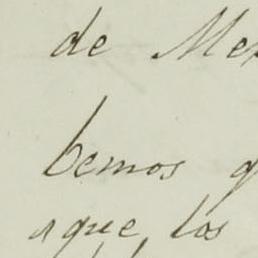 de Me
bemos
aque los